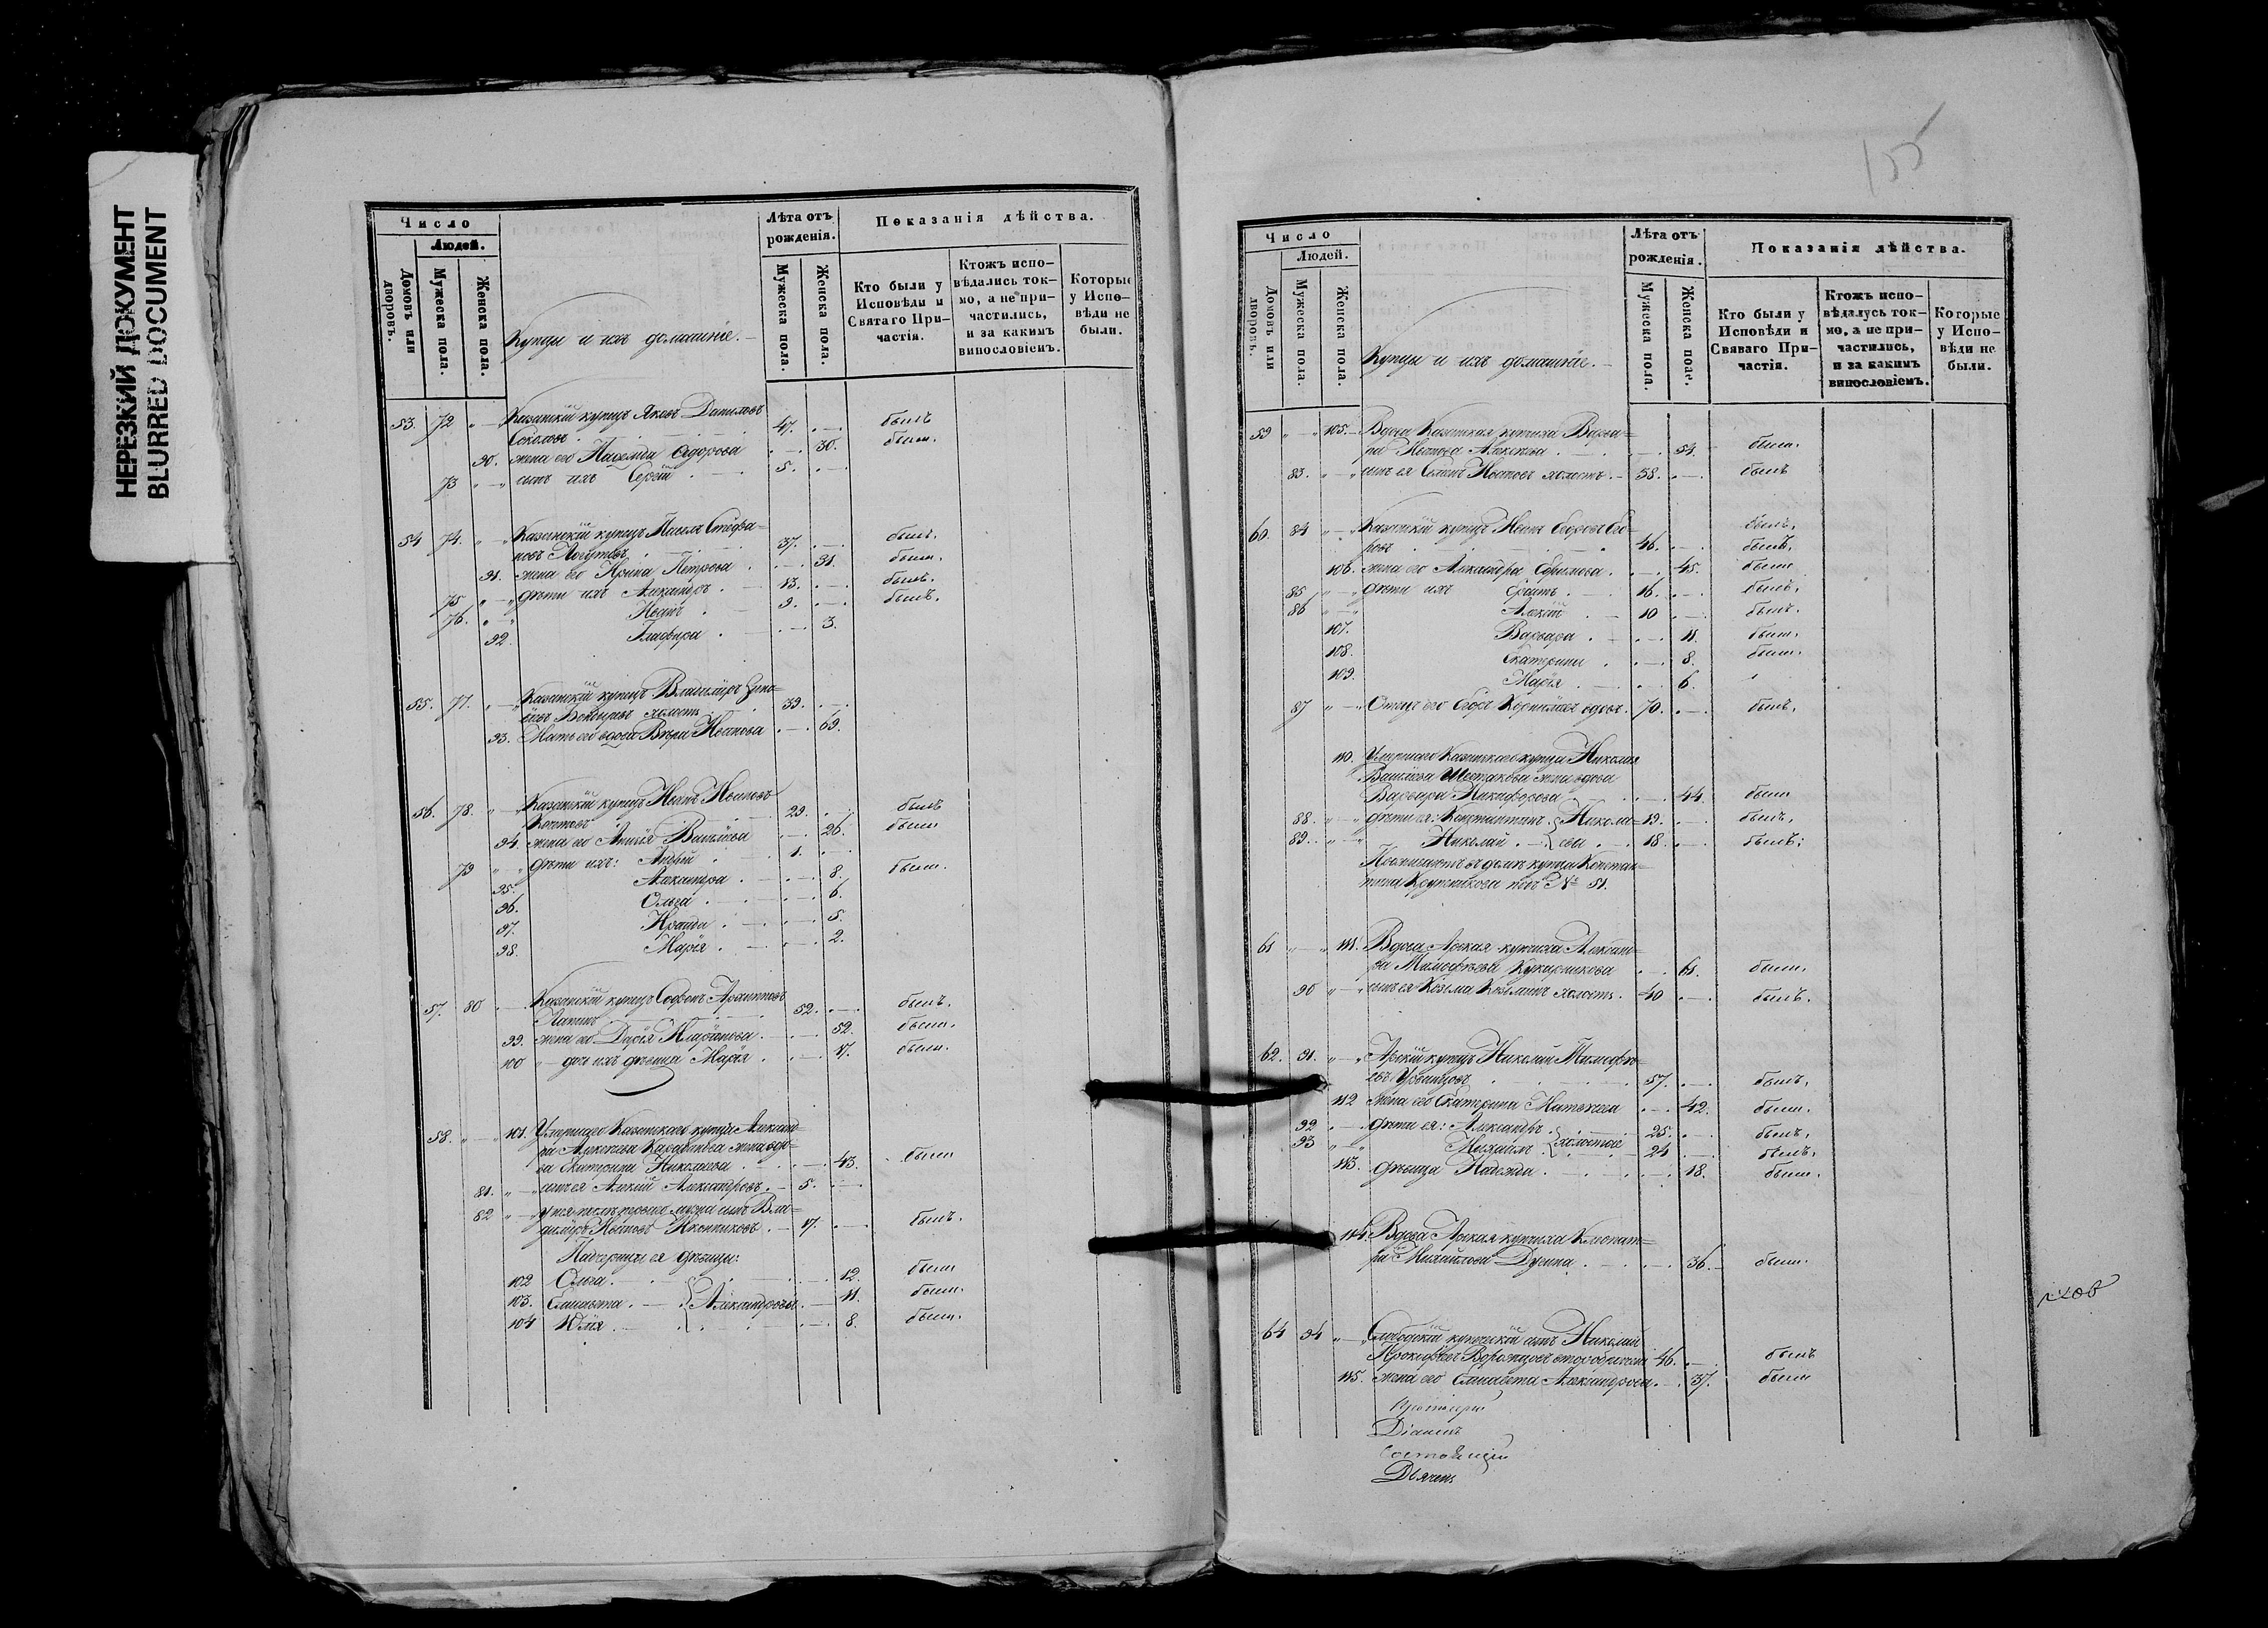 НЕРЕЗКИЙ ДОКУМЕНТ
BLURRED DOCUMENT
Число
Людей.
Домовъ или дворовъ.
Мужеска пола.
Женска пола.
Купцы и ихъ домашніе.
Лѣта отъ рожденія.
Мужеска пола.
Женска пола.
Показанія дѣйства.
Кто были у Исповѣди и Святаго Причастія.
Ктожъ исповѣдались токмо, а не причастились, и за какимъ винословіемъ.
Которые у Исповѣди не были.
53. 72 " Казанскій купецъ Яковъ Даниловъ
Соколовъ . 47. былъ
90. жена его Надежда Ѳедорова 30. была.
73 " " сынъ ихъ Сергій 5.
54 74. " Казанскій купецъ Павелъ Стефа=
новъ 37. былъ.
91. жена его Ирина Петрова . 31. была.
75 " " дѣти ихъ Александръ . 13. былъ.
76. " " Иванъ 9. былъ.
92. Глафира . 3.
55. 77. " Казанскій купецъ Владиміръ
холостъ 39.
93. Мать его вдова Вѣра Иванова 69.
56. 78. " Казанскій купецъ Иванъ Ивановъ
29. былъ
94. жена его Васильева 26. была
79 " " дѣти ихъ: Андрей . 1.
95. Александра . 8. была.
96. Ольга . 6.
97. 5.
98. Марія . 2.
57. 80 Казанскій купецъ Софонъ Архиповъ
Лапинъ 52. былъ.
99. жена его Дарія 52. была.
100 " дочь ихъ дѣвица Марія . 17. была.
58. " 101. Умершаго Казанскаго купца Александ=
ра Алексѣева жена вдо=
ва Екатерина Николаева . 43. была
81. " " сынъ ея Алексій Александровъ . 5.
82 " " у нея отъ перваго мужа сынъ Вла=
диміръ Ивановъ 17. былъ.
Падчерицы ея дѣвицы:
102 Ольга . 12. была
103. Елисавета . Александровы . 11. была.
104 Юлія . 8. была.
155
Число
Людей.
Домовъ или дворовъ.
Мужеска пола.
Женска пола.
Купцы и ихъ домашніе.
Лѣта отъ рожденія.
Мужеска пола.
Женска поле.
Показанія дѣйства.
Кто были у Исповѣди и Свяваго Причастія.
Ктожъ исповѣдалусь токмо, а не причастились, и за какимъ винословіемъ.
Которые у Исповѣди не были.
59 " " 105. Вдова Казанская купчиха Варва=
ра Иванова Алексѣева . 54. была.
83. " " сынъ ея Ивановъ холостъ . 38. былъ
60. 84 " " Казанскій купецъ Иванъ Егоровъ Его=
ровъ 46. былъ.
былъ.
106. жена его Александра Ефимова . 45. была
85 " " дѣти ихъ 16. былъ.
86 " " Алексій 10 былъ.
107. Варвара . 11. была.
108. Екатерина . 8. была.
109. Марія . 6.
87 " " Отецъ его Егоръ вдовъ . 70. былъ.
110. Умершаго Казанскаго купца Николая
Васильева Шестакова жена вдова
Варвара Никифорова 44. была
88. " " дѣти ея: Константинъ . Никола= 19. былъ.
89. " " Николай . евы . 18. былъ.
Проживаютъ въ домѣ купца Констан=
тина подъ № 51.
61 " " 111. Вдова Арская купчиха Александ=
ра Тимофеева 61. была.
90 " " сынъ ея Козьма Козьминъ холостъ . 40 былъ.
62. 91. " " Арскій купецъ Николай Тимофѣ=
евъ 57. былъ.
112 жена его Екатерина 42. была.
92 дѣти ея: Александръ . холостые 25. былъ.
93 " " 24 былъ.
113. дѣвица Надежда . 18. была.
114 Вдова Арская купчиха Клеопат=
ра Михайлова 36. была.
64 94 " " Слободскій купеческій сынъ Николай
46. былъ
115. жена его Елисавета Александрова . 37. была
Діаконъ
Дьячекъ